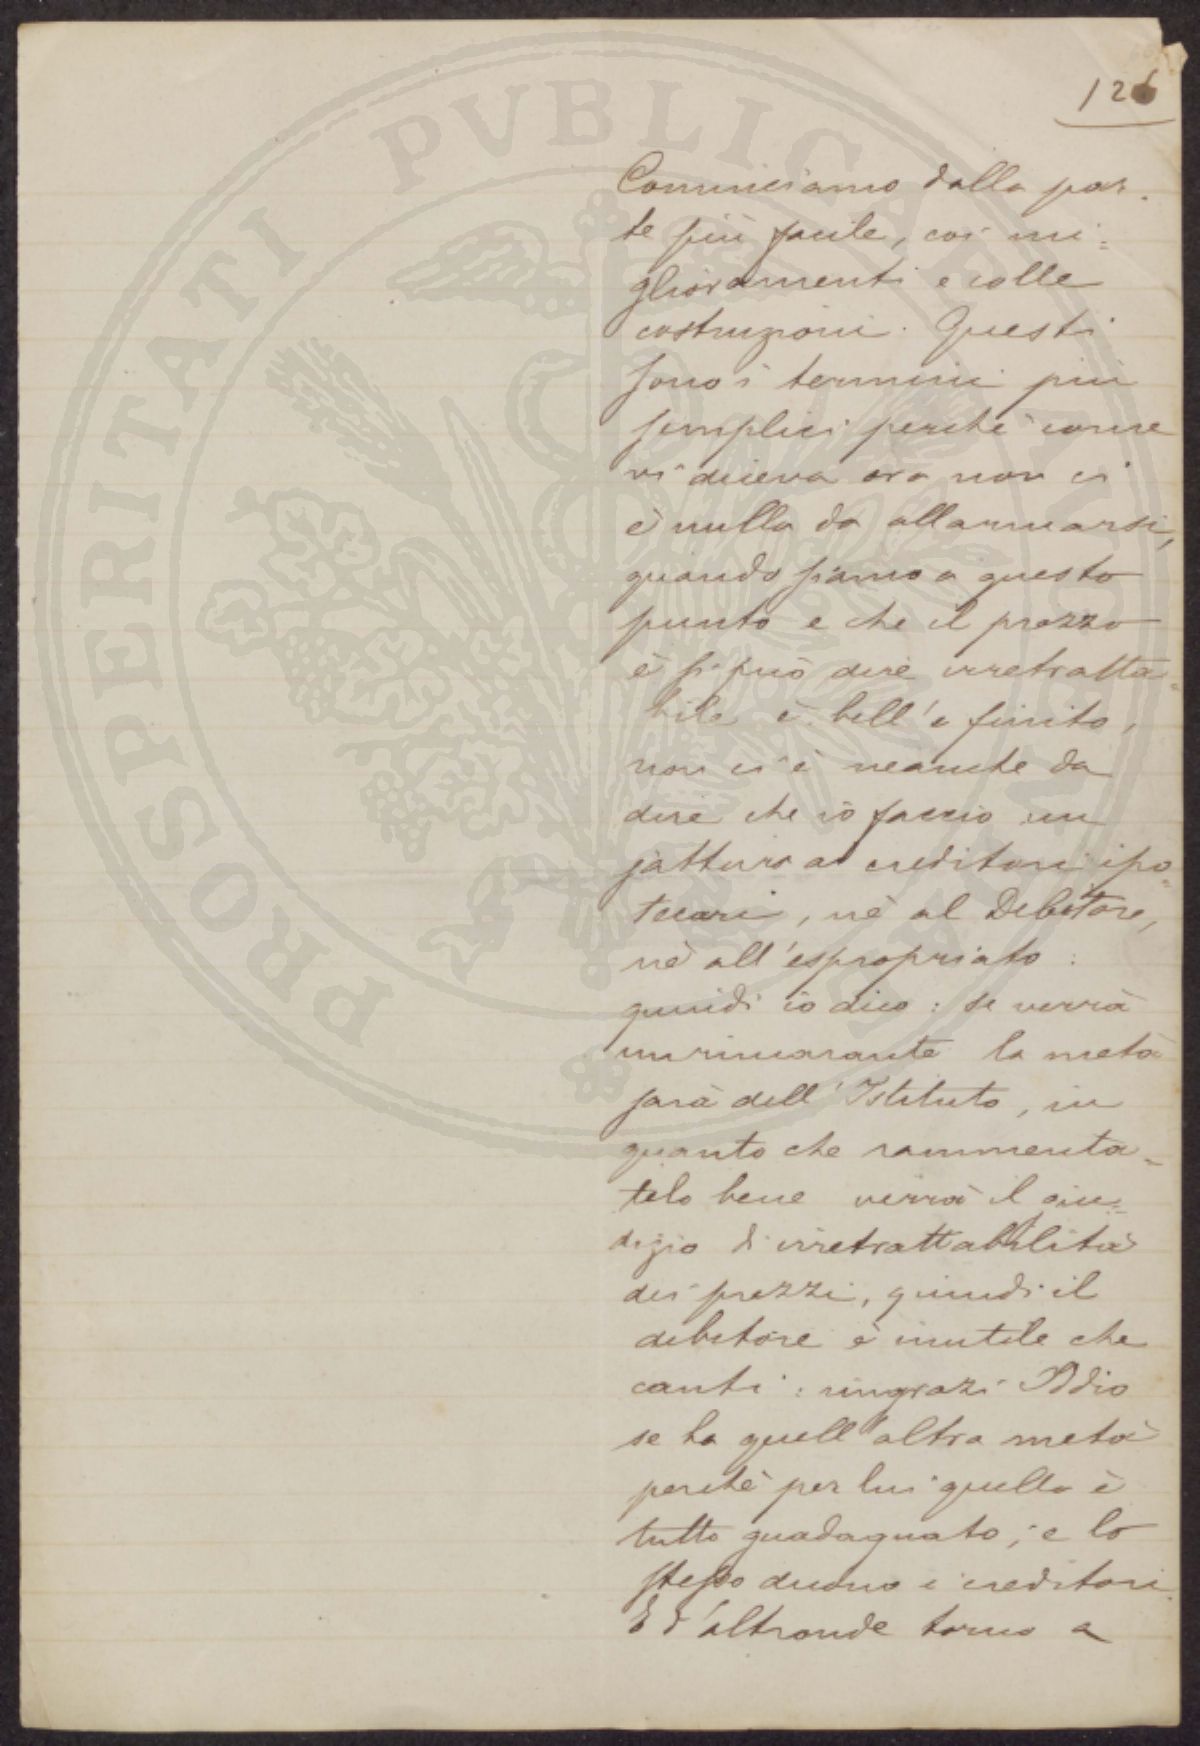 126
Cominciamo dalla par-
te più facile, coi mi=
glioramenti e colle
costruzioni. Questi
sono i termini più
semplici perchè come
vi diceva ora non ci
è nulla da allarmarsi,
quando siamo a questo
punto e che il prezzo
è si può dire irretratta=
bile è bell'e finito,
non ci è neanche da
dire che io faccio un
jattura a creditori ipo=
tecari, nè al Debitore,
nè all'espropriato:
quindi io dico: se verrà
un rimanente la metà
sarà dell'Istituto, in
quanto che rammenta=
telo bene verrà il giu=
dizio di irretrattabilità
dei prezzi, quindi il
debitore è inutile che
canti: ringrazi Iddio
se ha quell'altra metà
perchè per lui quello è
tutto guadagnato; e lo
stesso dicono i creditori.
E d'altronde torno a
PROSPERITATI PVBLICAE